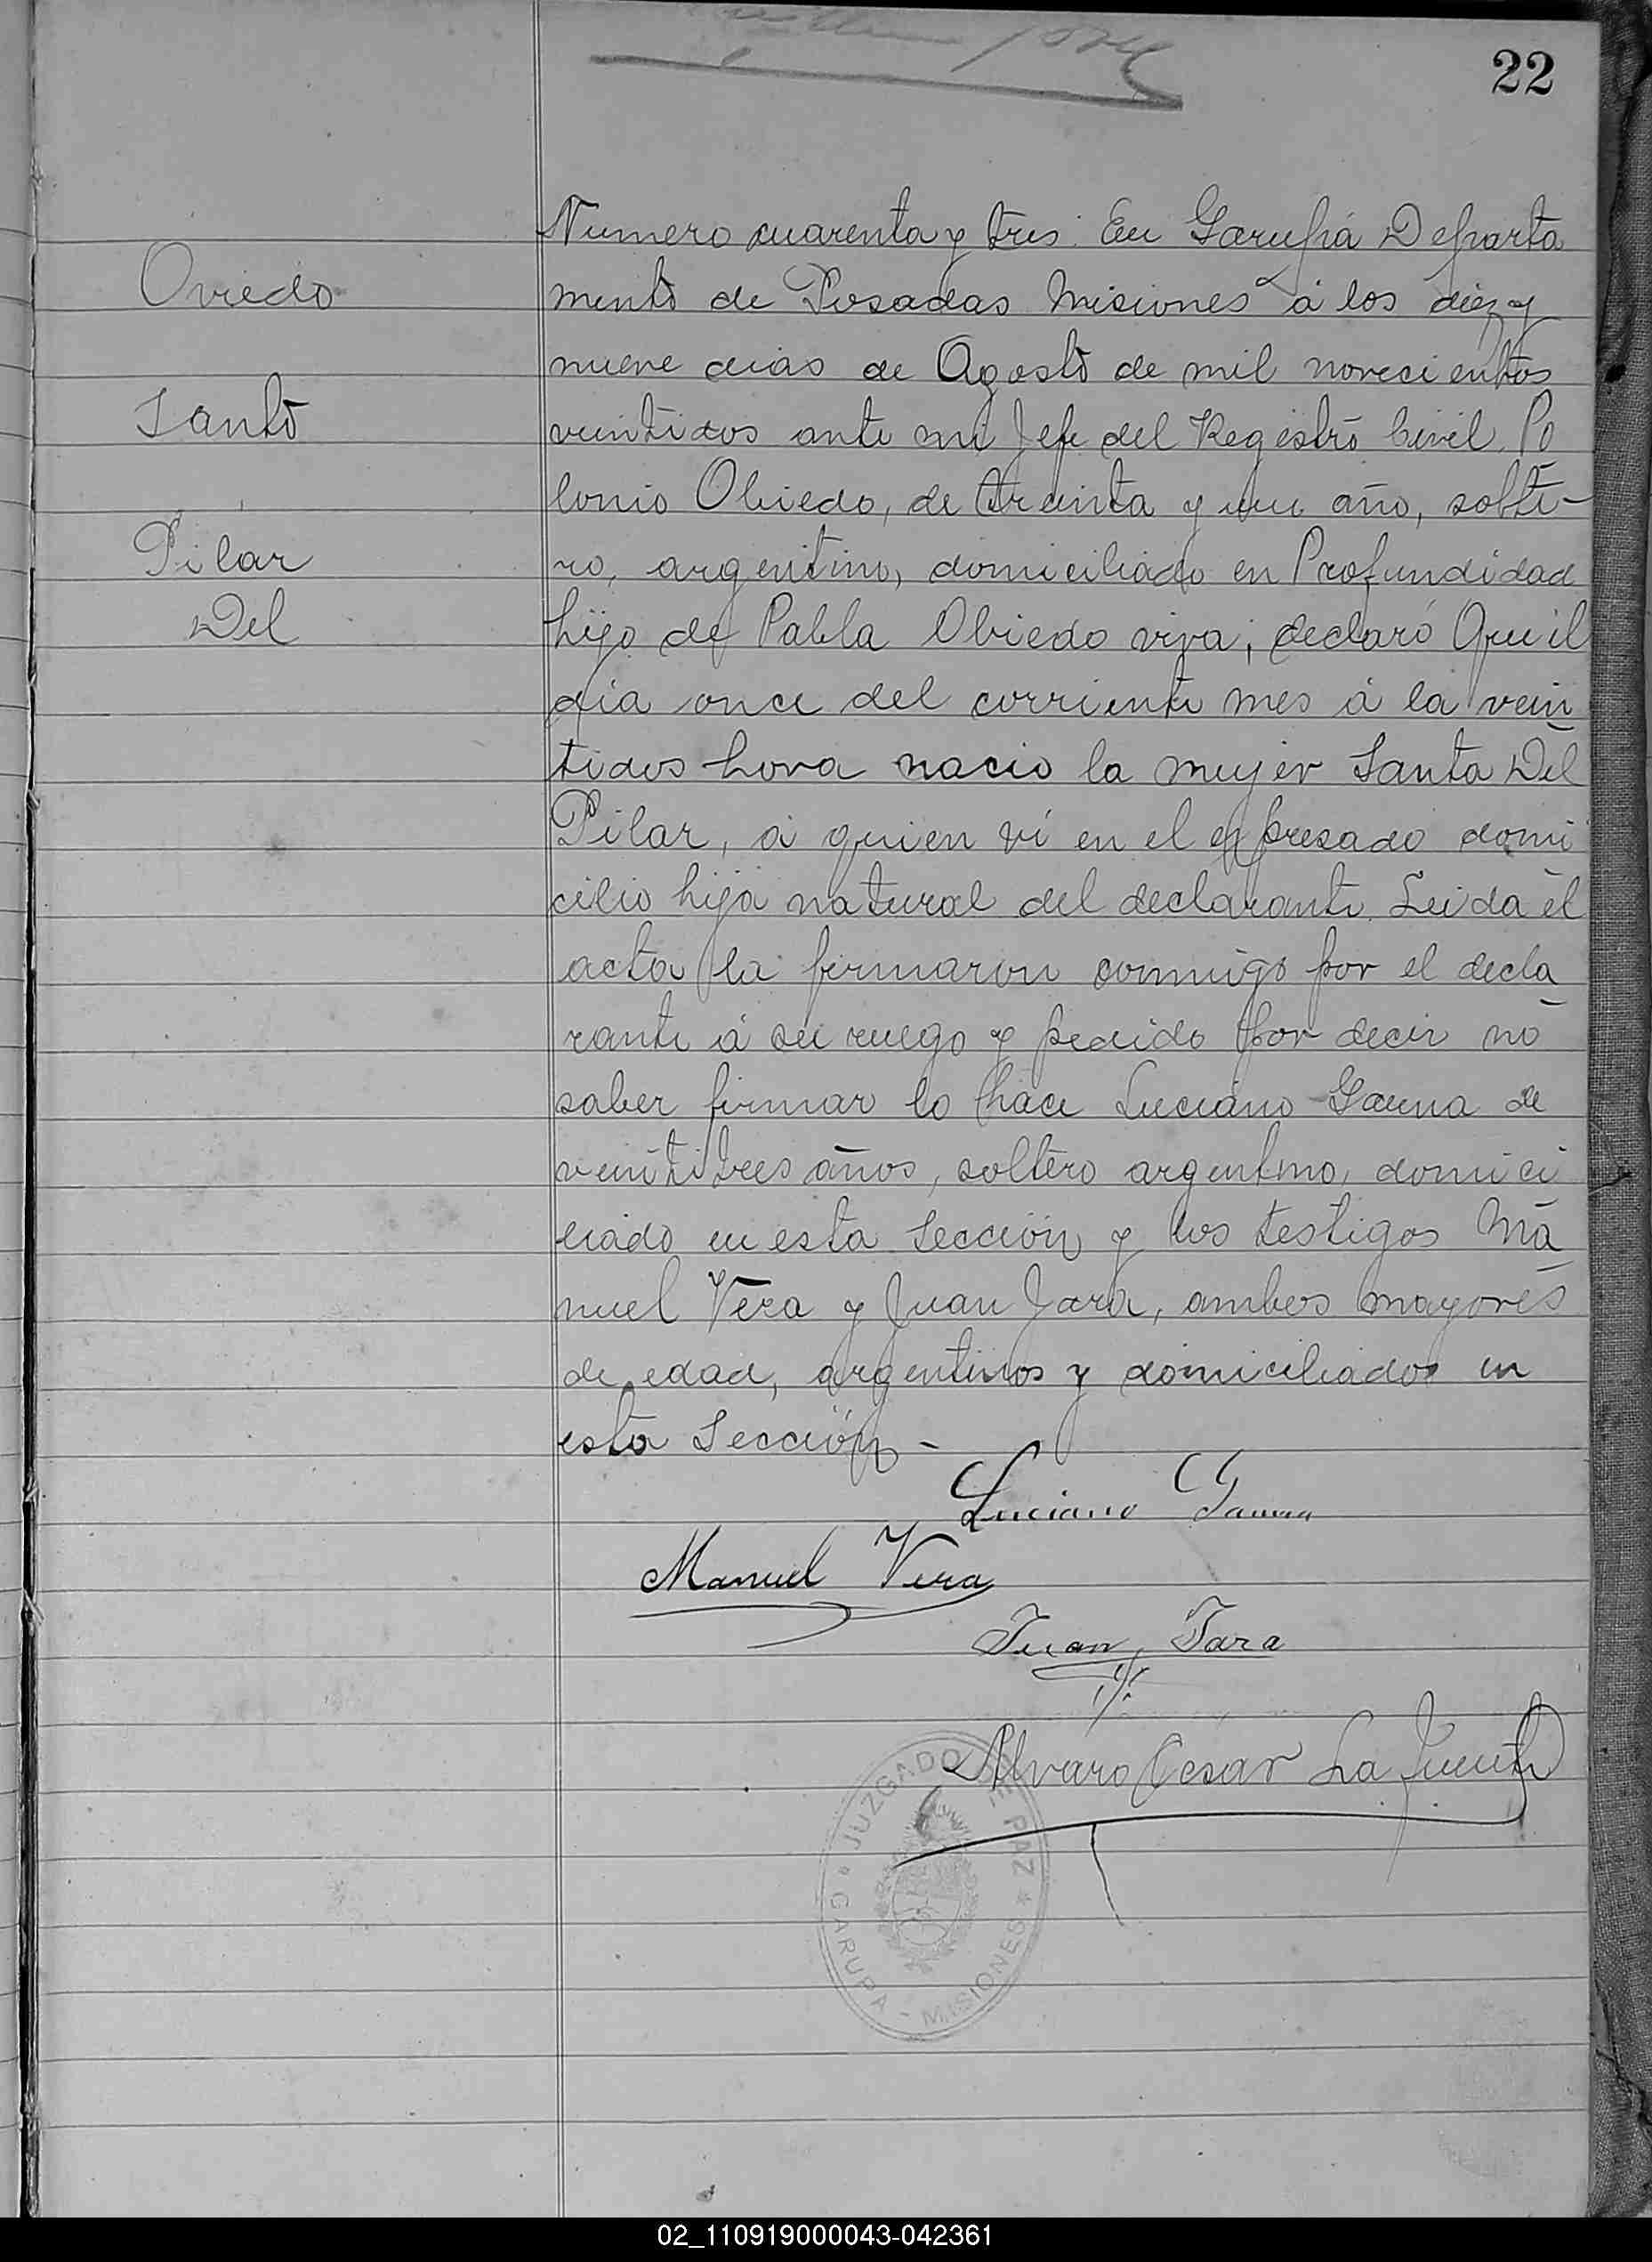 22
Numero cuarenta y tres. En Garupá Departa
mento de Posadas Misiones á los diez y
nueve dias de Agosto de mil novecientos
veintidos ante mi Jefe del Registro Civil, Po
lonio Obiedo, de treinta y un año, solte-
ro, argentino, domiciliado en Profundidad
hijo de Pabla Obiedo viva; declaró Que il
dia once del corriente mes á la vein
tidos hora nacio la mujer Santa Del
Pilar, á quien ví en el expresado domi
cilio hija natural del declarante. Leida el
acta la firmaron conmigo por el decla
rante á su ruego y pedido por decir no
saber firmar lo hace Luciano Gauna de
veintitres años, soltero argentino, domici
liado en esta Sección y los testigos Ma
nuel Vera y Juan Jara, ambos mayores
de edad, argentinos y domiciliados en
esta Sección -
Oviedo
Santo
Pilar
Del
Luciano Gauna
Manuel Vera
Juan Jara
Alvaro Cesar La Fuente
JUZGADO DE PAZ * GARUPA - MISIONES *
02_110919000043-042361